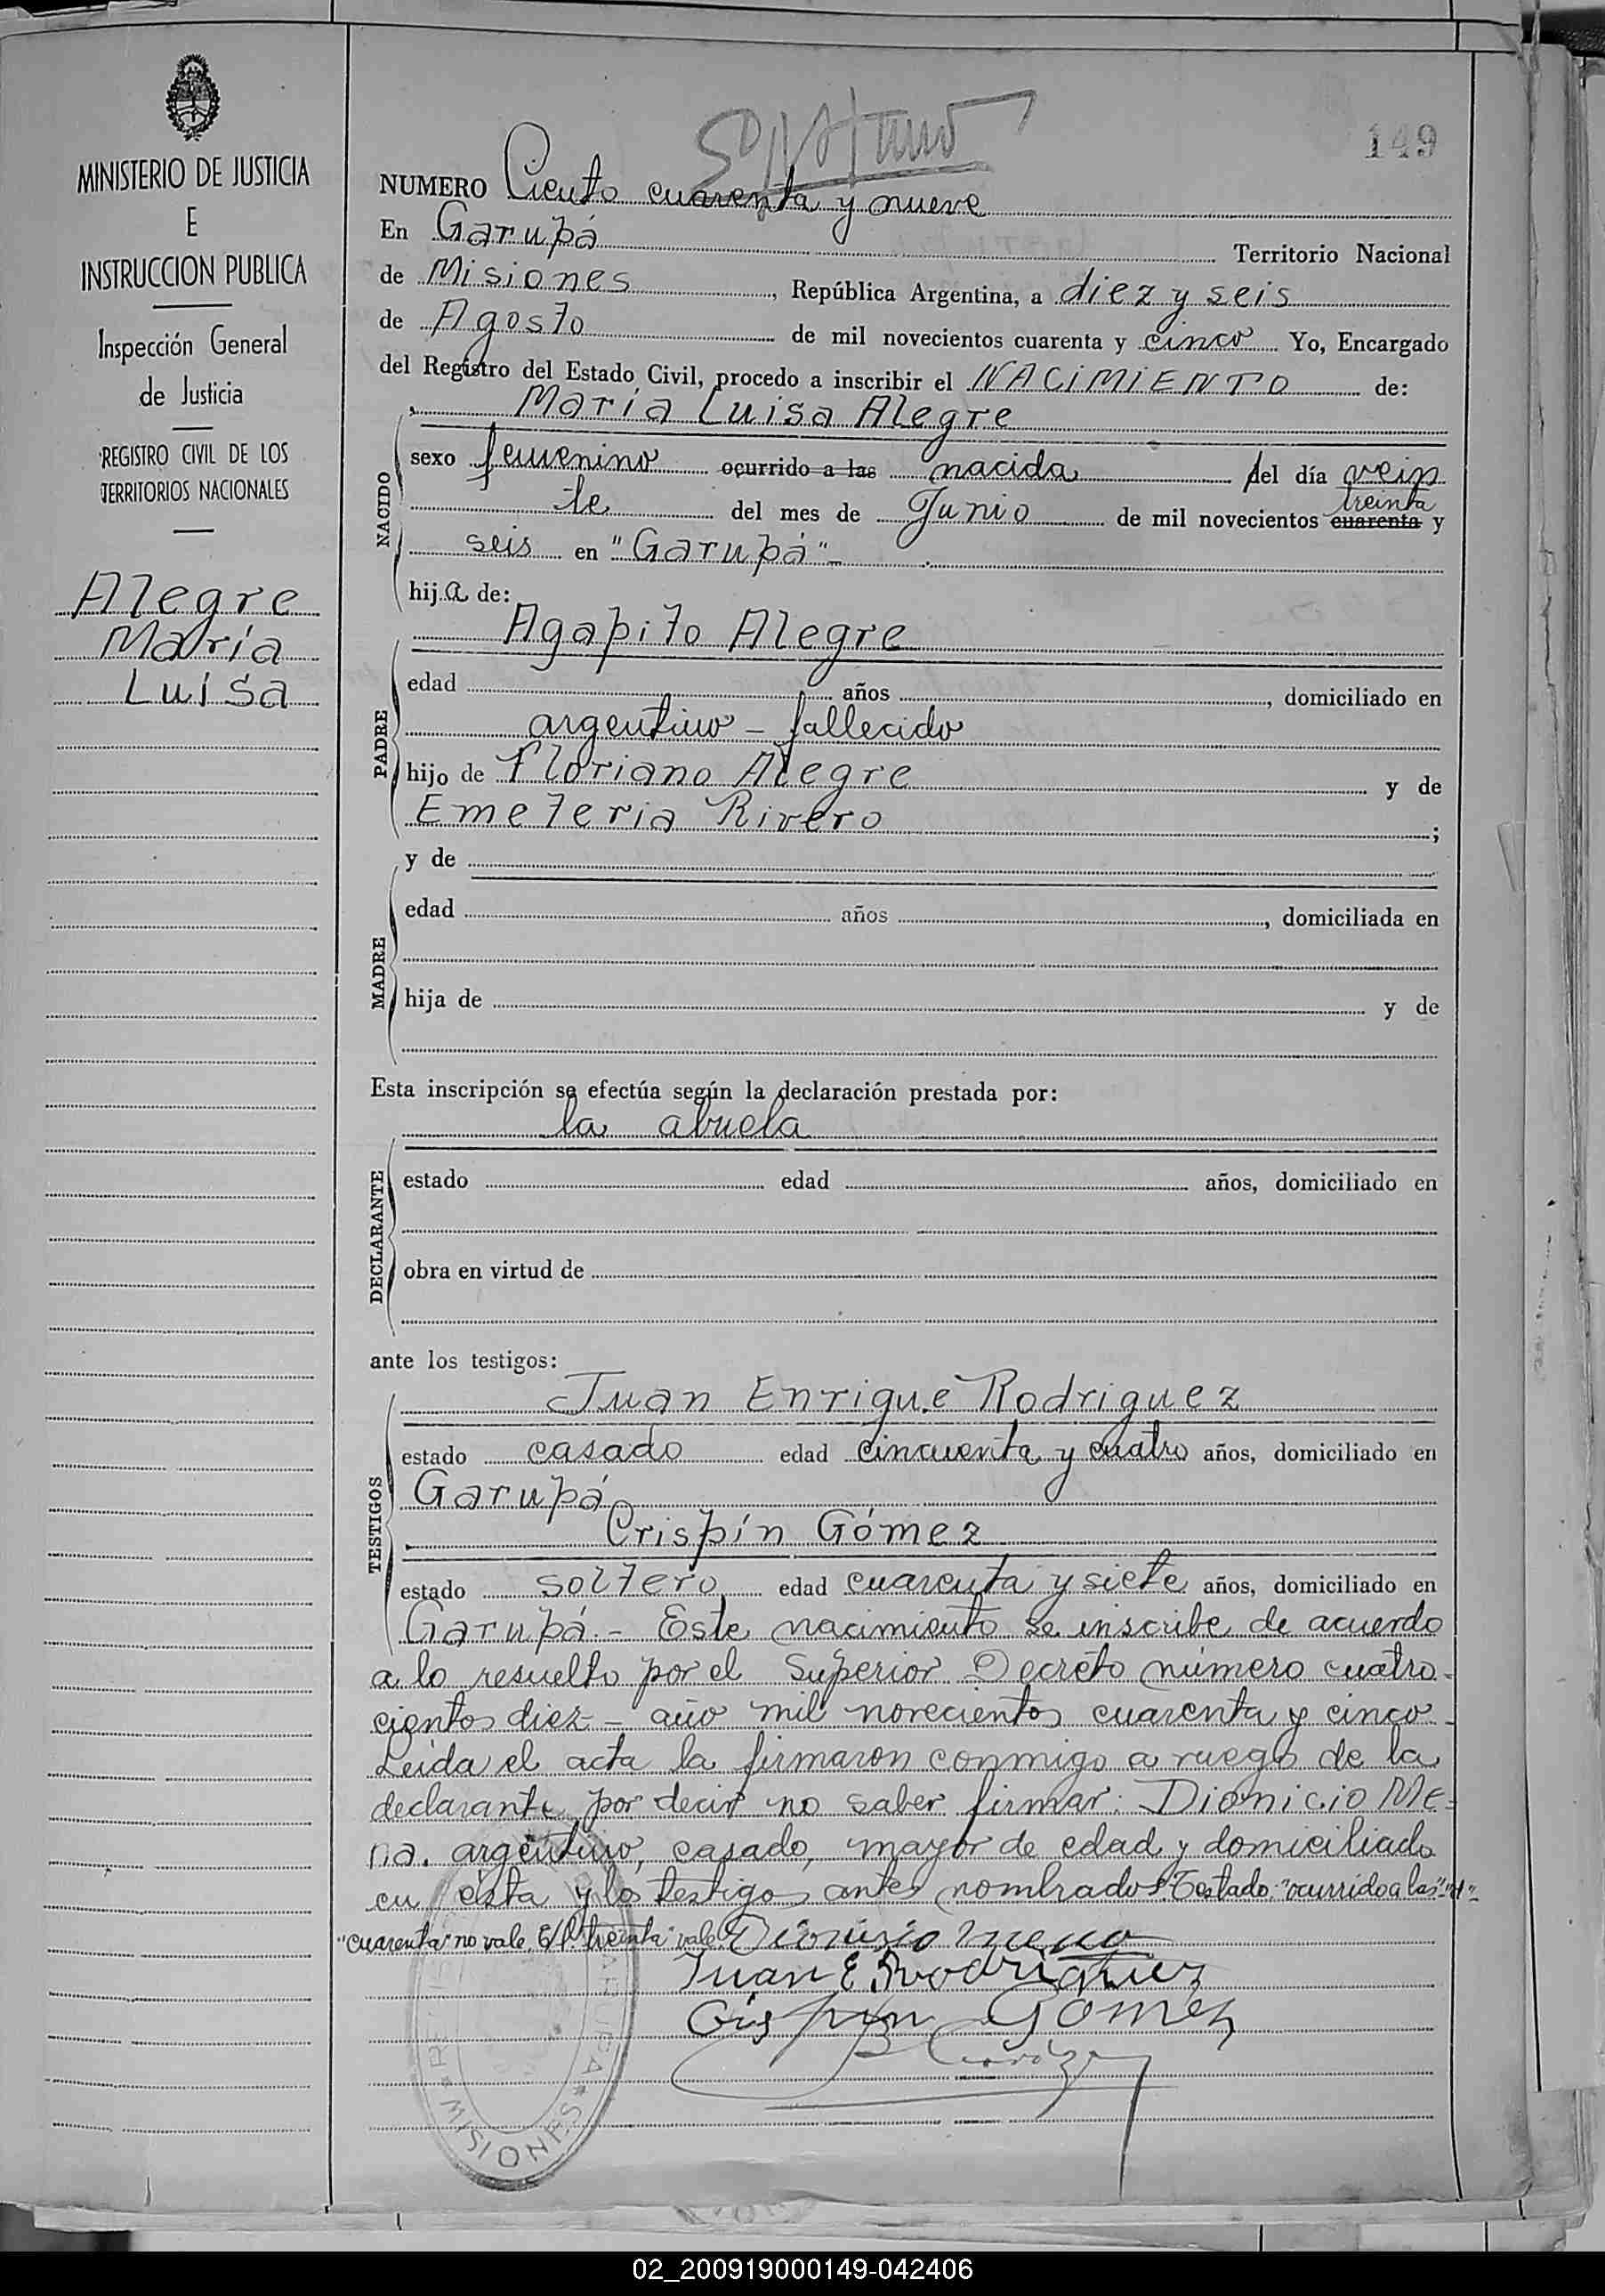 MINISTERIO DE JUSTICIA
E
INSTRUCCION PUBLICA
Inspección General
de Justicia
REGISTRO CIVIL DE LOS
TERRITORIOS NACIONALES
Alegre
María
Luisa
149
NUMERO Ciento cuarenta y nueve
En Garupá Territorio Nacional
de Misiones, República Argentina, a diez y seis
de Agosto de mil novecientos cuarenta y cinco Yo, Encargado
del Registro del Estado Civil, procedo a inscribir el NACIMIENTO de:
María Luisa Alegre
NACIDO
sexo femenino ocurrido a las nacida del día vein
te del mes de Junio de mil novecientos cuarenta treinta y
seis en "Garupá"-
hija de:
Agapito Alegre
PADRE
edad años, domiciliado en
argentino - fallecido
hijo de Floriano Alegre y de
Emeteria Rivero;
y de
MADRE
edad años, domiciliada en
hija de y de
Esta inscripción se efectúa según la declaración prestada por:
la abuela
DECLARANTE
estado edad años, domiciliado en
obra en virtud de
ante los testigos:
Juan Enrique Rodriguez
TESTIGOS
estado casado edad cincuenta y cuatro años, domiciliado en
Garupá
Crispín Gómez
estado soltero edad cuarenta y siete años, domiciliado en
Garupá.- Este nacimiento se inscribe de acuerdo
a lo resuelto por el Superior Decreto número cuatro-
cientos diez - año mil novecientos cuarenta y cinco.
Leída el acta la firmaron conmigo a ruego de la
declarante por decir no saber firmar: Dionicio Me-
na. argentino, casado, mayor de edad y domiciliado
en ésta y los testigos antes nombrados. Testado: "ocurrido a las"
"cuarenta" no vale. E/l. "treinta" vale. Dionisio Mena
Juan E. Rodriguez
Crispin Gomez
MISIONES
02_200919000149-042406